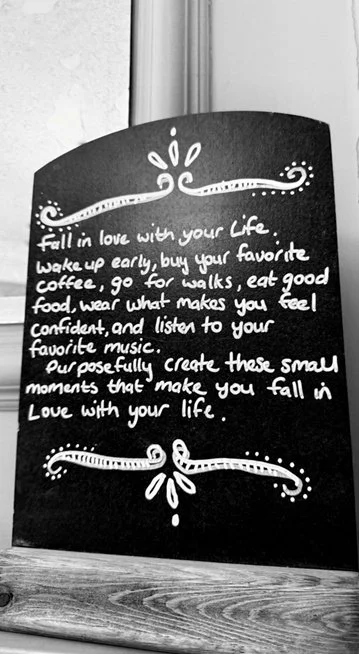 Fall in love with your Life.
Wake up early, buy your favorite
coffee, go for walks, eat good
food, wear what makes you feel
confident, and listen to your
favorite music.
Purposefully create these small
moments that make you fall in
Love with your life.